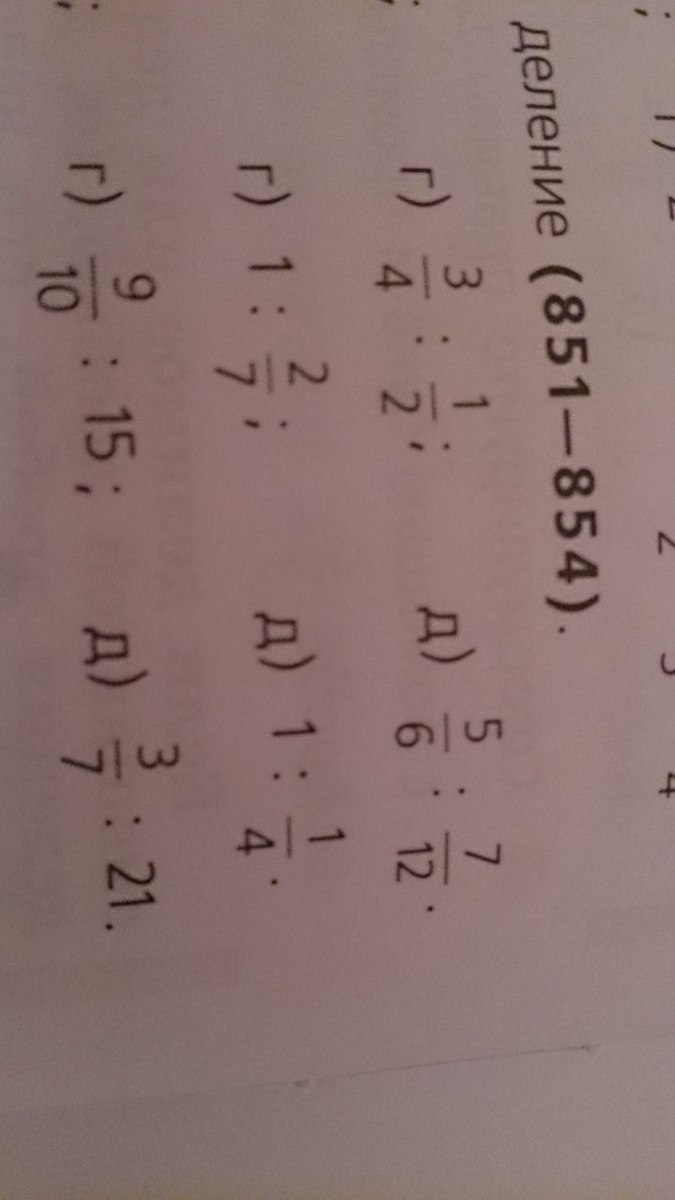 деление (851—854).
г) 3/4 : 1/2; д) 5/6 : 7/12.
г) 1 : 2/7; д) 1 : 1/4.
г) 9/10 : 15; д) 3/7 : 21.